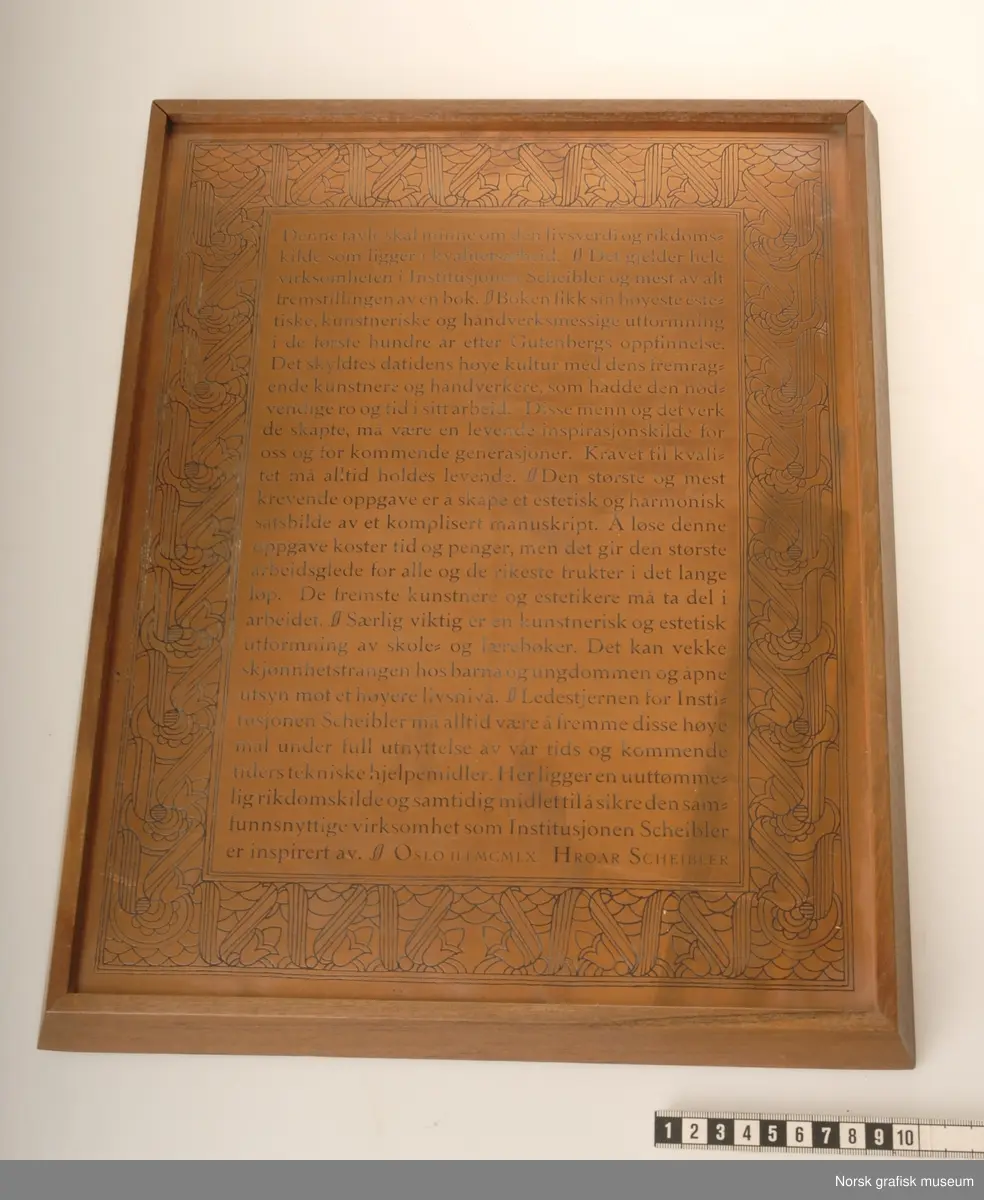 Denne tavle skal minne om den livsverdi og rikdoms=
kilde som ligger i kvalitetsarbeid. Det gjelder hele
virksomheten i Institusjonen Scheibler og mest av alt
fremstillingen av en bok. Boken fikk sin høyeste este=
tiske, kunstneriske og håndverksmessige utformning
i de første hundre år efter Gutenbergs oppfinnelse.
Det skyldtes datidens høye kultur med dens fremrag=
ende kunstnere og håndverkere, som hadde den nød=
vendige ro og tid i sitt arbeid. Disse menn og det verk
de skapte, må være en levende inspirasjonskilde for
oss og for kommende generasjoner. Kravet til kvali=
tet må alltid holdes levende. Den største og mest
krevende oppgave er å skape et estetisk og harmonisk
satsbilde av et komplisert manuskript. Å løse denne
oppgave koster tid og penger, men det gir den største
arbeidsglede for alle og de rikeste frukter i det lange
løp. De fremste kunstnere og estetikere må ta del i
arbeidet. Særlig viktig er en kunstnerisk og estetisk
utformning av skole= og lærebøker. Det kan vekke
skjønnhetstrangen hos barna og ungdommen og åpne
utsyn mot et høyere livsnivå. Ledestjernen for Insti=
tusjonen Scheibler må alltid være å fremme disse høye
mål under full utnyttelse av vår tids og kommende
tiders tekniske hjelpemidler. Her ligger en uuttømme=
lig rikdomskilde og samtidig midlet til å sikre den sam=
funnsnyttige virksomhet som Institusjonen Scheibler
er inspirert av. OSLO II I MCMLX HROAR SCHEIBLER
1 2 3 4 5 6 7 8 9 10
Norsk grafisk museum